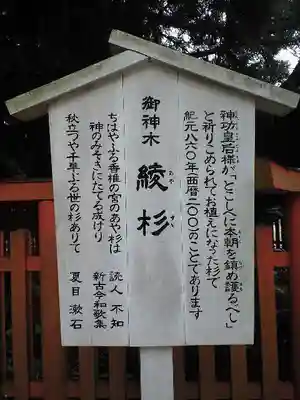 神功皇后様が「とこしへに本朝を鎮め護るべし」
と祈りこめられてお植えになった杉で
紀元八六〇年(西暦二〇〇)のことであります
御神木 綾杉
あや すぎ
ちはやふる香椎の宮のあや杉は
神のみそぎにたてる成けり
読人 不知
新古今和歌集
秋立つや千早ふる世の杉ありて
夏目 漱石